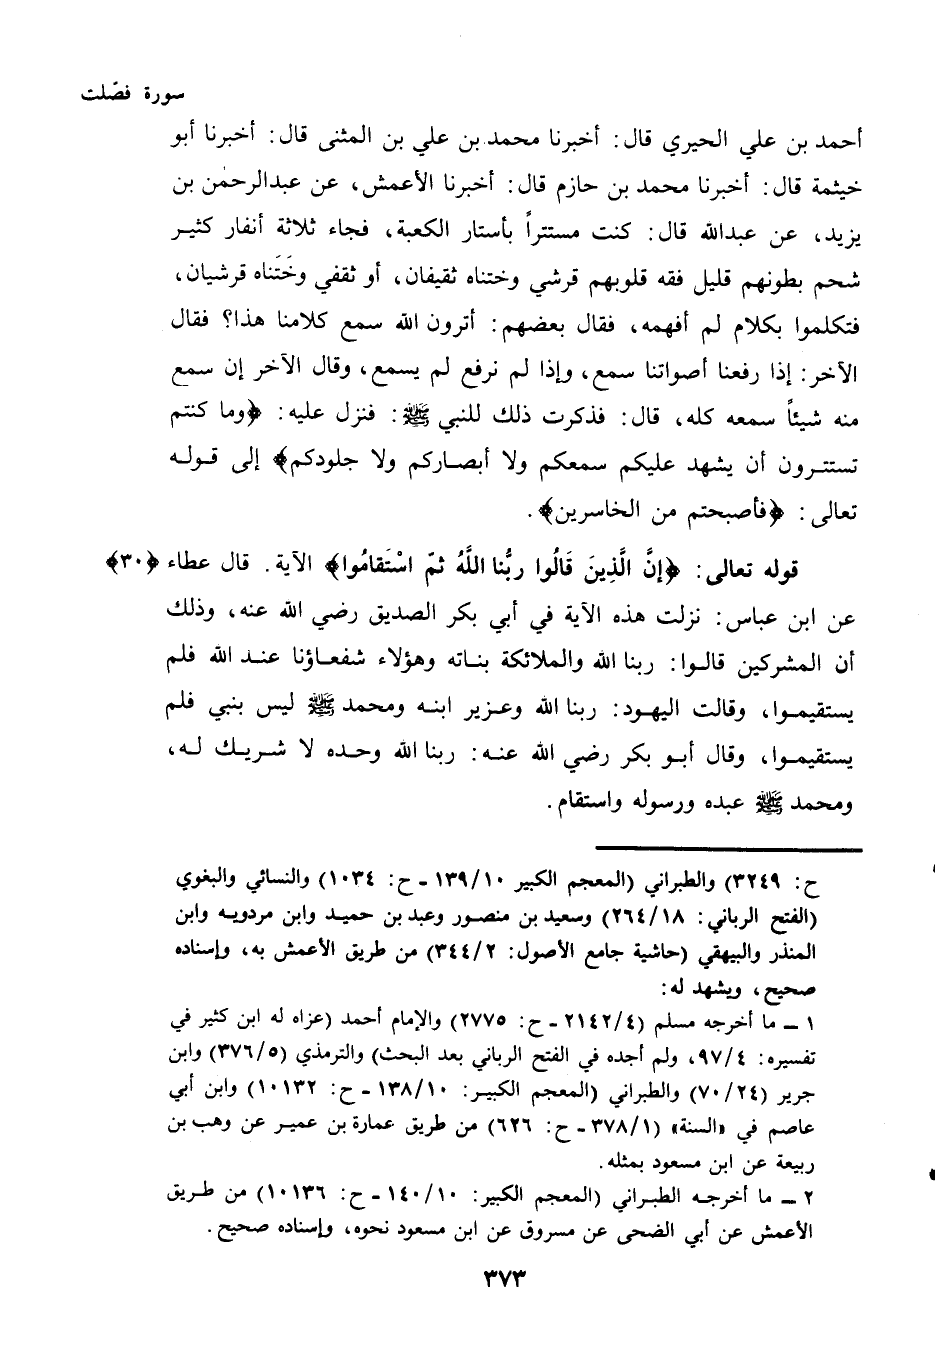 سورة فصّلت
أحمد بن علي الحيري قال: أخبرنا محمد بن علي بن المثنى قال: أخبرنا أبو
خيثمة قال: أخبرنا محمد بن حازم قال: أخبرنا الأعمش، عن عبدالرحمٰن بن
يزيد، عن عبدالله قال: كنت مستتراً بأستار الكعبة، فجاء ثلاثة أنفار كثيـر
شحم بطونهم قليل فقه قلوبهم قرشي وختناه ثقيفان، أو ثقفي وخَتَناه قرشيان،
فتكلموا بكلام لم أفهمه، فقال بعضهم: أترون الله سمع كلامنا هذا؟ فقال
الآخر: إذا رفعنا أصواتنا سمع، وإذا لم نرفع لم يسمع، وقال الآخر إن سمع
منه شيئاً سمعه كله، قال: فذكرت ذلك للنبي ﷺ: فنزل عليه: ﴿وما كنتم
تستتـرون أن يشهد عليكم سمعكم ولا أبصـاركم ولا جلودكم﴾ إلى قـولـه
تعالى: ﴿فأصبحتم من الخاسرين﴾.
قوله تعالى: ﴿إنَّ الَّذِينَ قَالُوا ربُّنا اللَّهُ ثمّ اسْتَقامُوا﴾ الآية. قال عطاء ﴿٣٠﴾
عن ابن عباس: نزلت هذه الآية في أبي بكر الصديق رضي الله عنه، وذلك
أن المشركين قالـوا: ربنا الله والملائكة بنـاته وهؤلاء شفعـاؤنا عنـد الله فلم
يستقيمـوا، وقالت اليهـود: ربنـا الله وعـزير ابنـه ومحمـد ﷺ ليس بنبي فلم
يستقيمـوا، وقال أبـو بكر رضي الله عنـه: ربنـا الله وحـده لا شـريـك لـه،
ومحمد ﷺ عبده ورسوله واستقام.
ح: ٣٢٤٩) والطبراني (المعجم الكبير ١٣٩/١٠ - ح: ١٠٣٤) والنسائي والبغوي
(الفتح الرباني: ٢٦٤/١٨) وسعيد بن منصـور وعبد بن حميـد وابن مردويـه وابن
المنذر والبيهقي (حاشية جامع الأصول: ٣٤٤/٢) من طريق الأعمش به، وإسناده
صحيح، ويشهد له:
١ - ما أخرجه مسلم (٢١٤٢/٤ - ح: ٢٧٧٥) والإمام أحمد (عزاه له ابن كثير في
تفسيره: ٩٧/٤، ولم أجده في الفتح الرباني بعد البحث) والترمذي (٣٧٦/٥) وابن
جرير (٧٠/٢٤) والطبراني (المعجم الكبيـر: ١٣٨/١٠ - ح: ١٠١٣٢) وابن أبي
عاصم في «السنة» (٣٧٨/١ - ح: ٦٢٦) من طريق عمارة بن عميـر عن وهب بن
ربيعة عن ابن مسعود بمثله.
٢ - ما أخرجـه الطبـراني (المعجم الكبير: ١٤٠/١٠ - ح: ١٠١٣٦) من طـريق
الأعمش عن أبي الضحى عن مسروق عن ابن مسعود نحوه، وإسناده صحيح.
٣٧٣